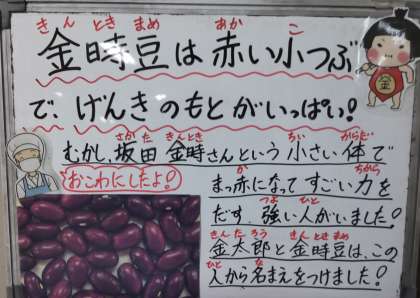 きんときまめ あか こ
金時豆は赤い小つぶ
で、げんきのもとがいっぱい!
さかた きんとき ちい からだ
むかし、坂田金時さんという小さい体で
か ちから
まっ赤になってすごい力を
つよ ひと
だす、強い人がいました!
きんたろう きんときまめ
金太郎と金時豆は、この
ひと な
人から名まえをつけました!
おこわにしたよ!
金